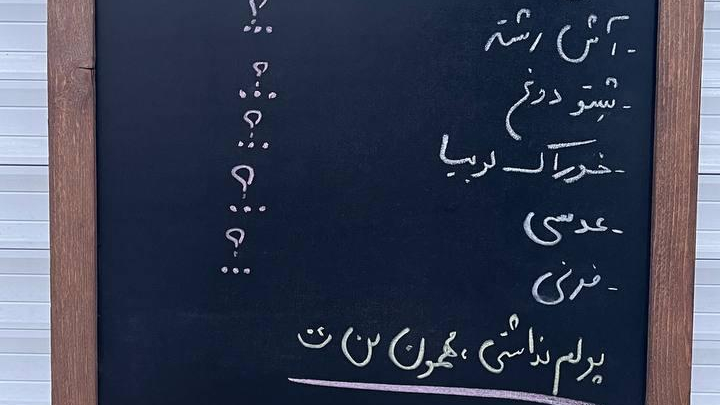 - آش رشته ؟...
- ؟...
- خوراک لوبیا ؟...
- عدسی ؟...
- فرنی ؟...
پولم نداشتی، مهمون من